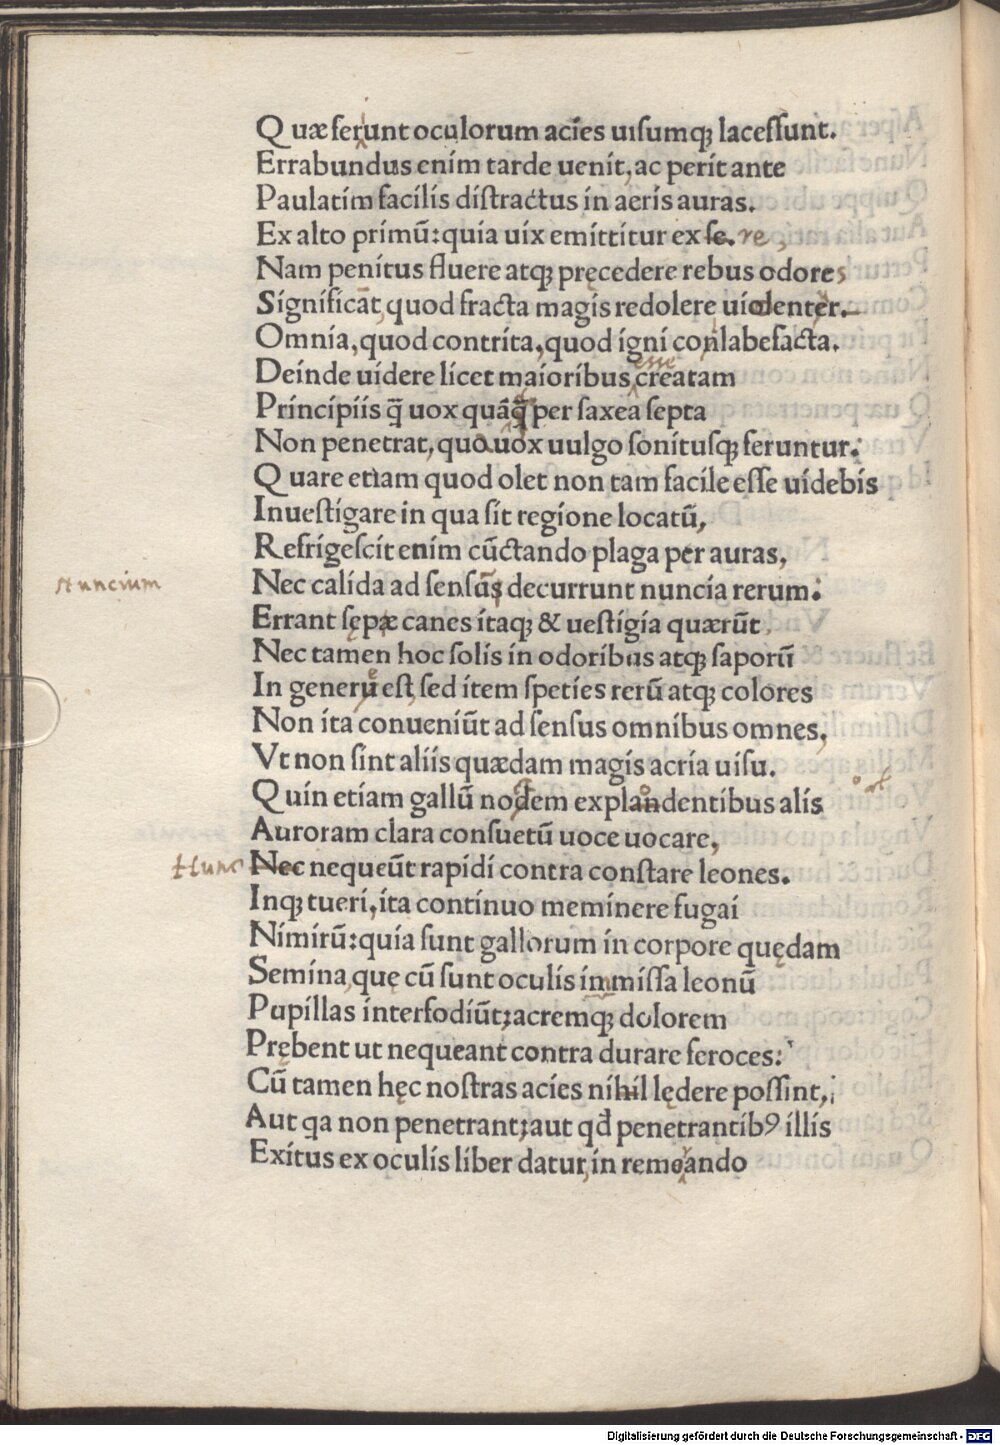 Quæ ferunt oculorum acies uisumq; lacessunt.
Errabundus enim tarde uenit, ac perit ante
Paulatim facilis distractus in aeris auras.
Ex alto primū: quia uix emittitur ex se. re,
Nam penitus fluere atq; pręcedere rebus odores
Significāt, quod fracta magis redolere uidenter.
Omnia, quod contrita, quod igni conlabefacta.
esse
Deinde uidere licet maioribus creatam
Principiis q̄ uox quāq̄ per saxea septa
Non penetrat, quo uox uulgo sonitusq; feruntur:
Quare etiam quod olet non tam facile esse uidebis
Inuestigare in qua sit regione locatū,
Refrigescit enim cūctando plaga per auras,
Nuncium
Nec calida ad sensūs decurrunt nuncia rerum:
Errant sępæ canes itaq; & uestigia quærūt,
Nec tamen hoc solis in odoribus atq; saporū
In generu est, sed item speties rerū atq; colores
Non ita conueniūt ad sensus omnibus omnes,
Vt non sint aliis quædam magis acria uisu.
Quin etiam gallū nodem explandentibus alis
Auroram clara consuetū uoce uocare,
Hunc Nec nequeūt rapidi contra constare leones.
Inq; tueri, ita continuo meminere fugai
Nimirū: quia sunt gallorum in corpore quędam
Semina, quę cū sunt oculis immissa leonū
Pupillas interfodiūt; acremq; dolorem
Prębent ut nequeant contra durare feroces:
Cū tamen hęc nostras acies nihil lędere possint,
Aut qa non penetrant; aut qd penetrantibꝯ illis
Exitus ex oculis liber datur, in remorando
Digitalisierung gefördert durch die Deutsche Forschungsgemeinschaft - DFG